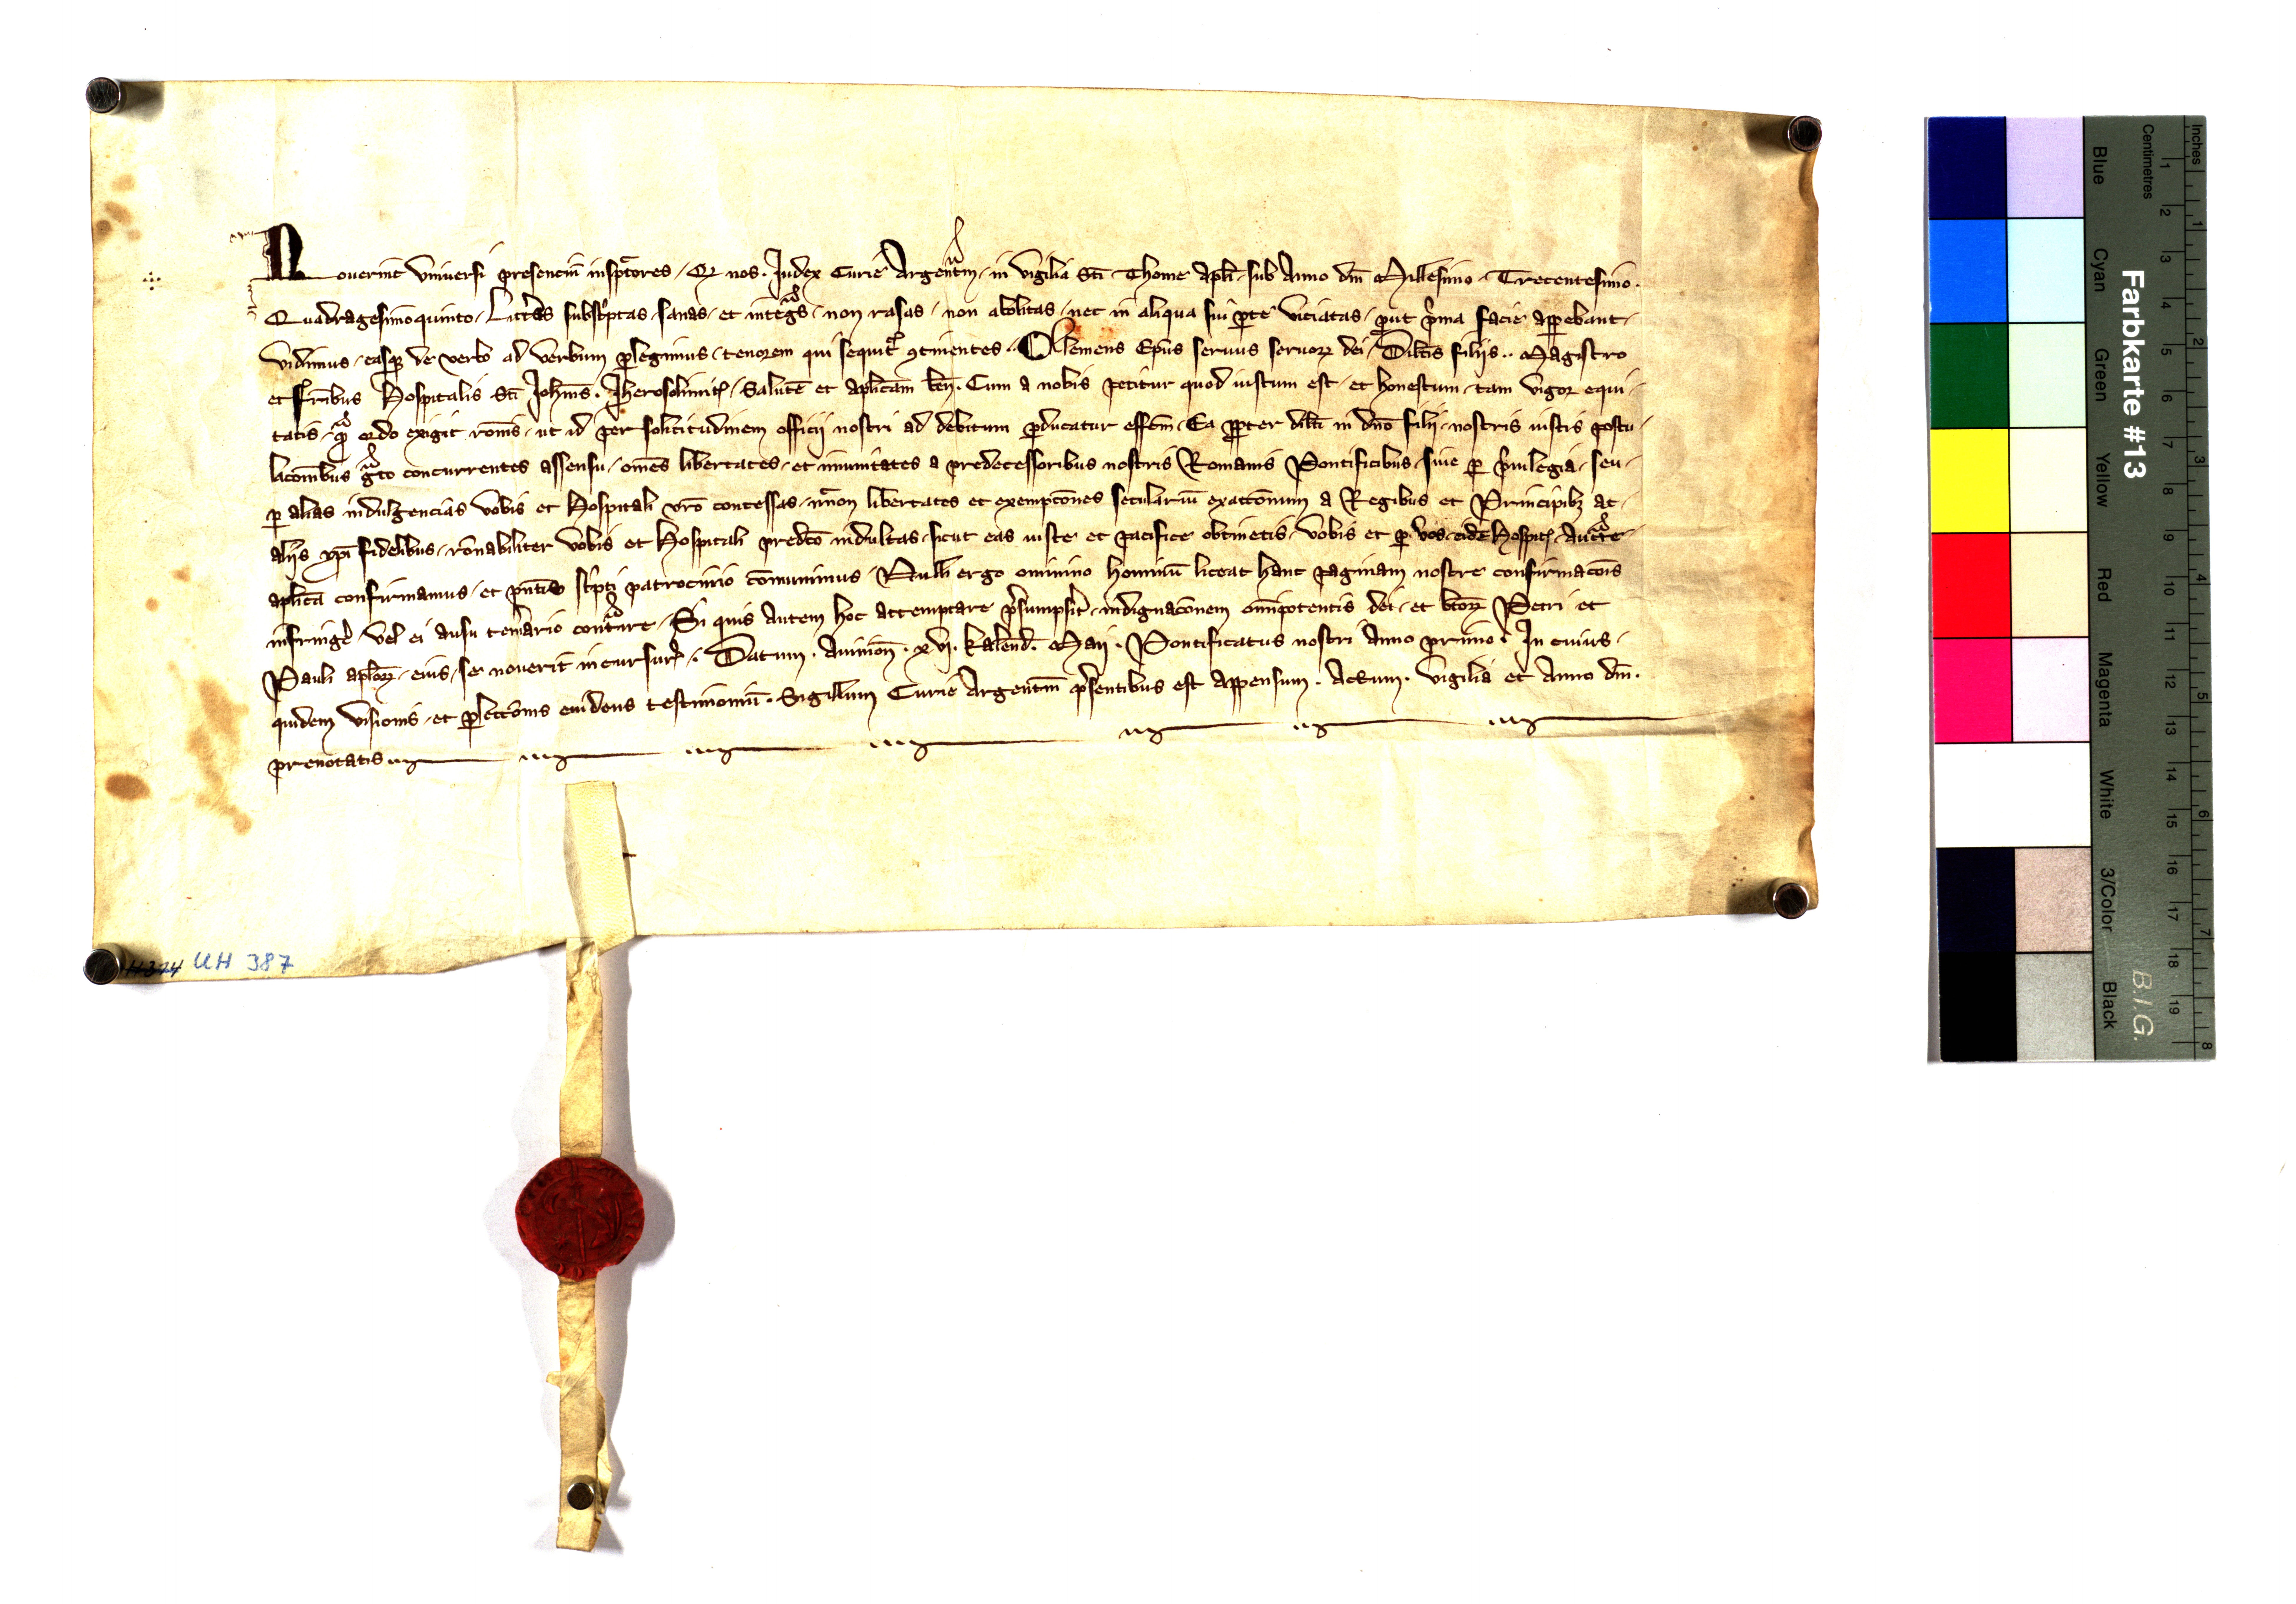 Noverint universi presencium insp̄ctores, Qz nos. Judex Curie Argentin̄, in vigilia Sc̄i Thome apl̄i, sub Anno dn̄i Millesimo, Trecentesimo.
Quadragesimoquinto, Litter̄as subscͥptas, sanas, et integͣs, non rasas, non abolitas, nec in aliqua sui p̱te viciatas, put pͥma facie app̱ebant,
vidimus, easqꝫ de verbo ad verbum p̱legimus, tenorem qui sequitͬ ꝯtinentes. Clemens Ep̄us servus servoꝝ dei, Dilc̄is filijs .. Magistro
et fr̄ibus Hospitalis Sc̄i Joh̄nis. Jherosolimit̄, Salutē et apl̄icam̄ ben̄. Cum a nobis petitur quod iustum est, et honestum, tam vigor equi-
tatis, qͣm ordo exigit ron̄is, ut id per sollicitudinem officij nostri ad debitum p̱ducatur effc̄m, Ea pp̱ter dilc̄i in dn̄o filij, nostris iustis postu-
lac̄onibus gͣto concurrentes assensu, om̄es libertates, et inmunitates a predecessoribus nostris Romanis Pontificibus, siue p̱ pͥuilegia, seu,
p̱ alias indulgencias vobis et Hospitali vr̄o concessas, necnon libertates et exempc̄ones seculariū exacc̄onum a Regibus et Principibꝫ ac,
alijs xp̄i fidelibus, ron̄abiliter vobis et Hospitali predc̄o indultas, sicut eas iuste et pacifice obtinetis, vobis et p̱ vos, eidē Hospit̄, Auctͣte
apl̄ica confirmamus, et pn̄tis scͥpti patrocinio cōmunimus, Nulli ergo omnino hominū liceat hanc paginam nostre confirmac̄ois
infringe᷒ vel ei ausu temerario contͣire, Si quis autem hoc attemptare pͤsumpsit̄, indignac̄onem omīpotentis dei, et btōꝝ Petri et
Pauli apl̄oꝝ, eius, se nouerit incursur̄. Datum. Auinion̄. xvj. kalend̄. Maij. Pontificatus nostri Anno primo. In cuius,
quidem visionis, et p̱lecc̄onis euidens testimoniū. Sigillum Curie Argentin̄ pͤsentibus est appensum. Actum. vigilia et Anno dn̄i.
prenotatis
H 374 UH 387
Farbkarte #13
B.I.G.
Inches
Centimetres
1 2 3 4 5 6 7 8 9 10 11 12 13 14 15 16 17 18 19
1 2 3 4 5 6 7 8
Blue Cyan Green Yellow Red Magenta White 3/Color Black